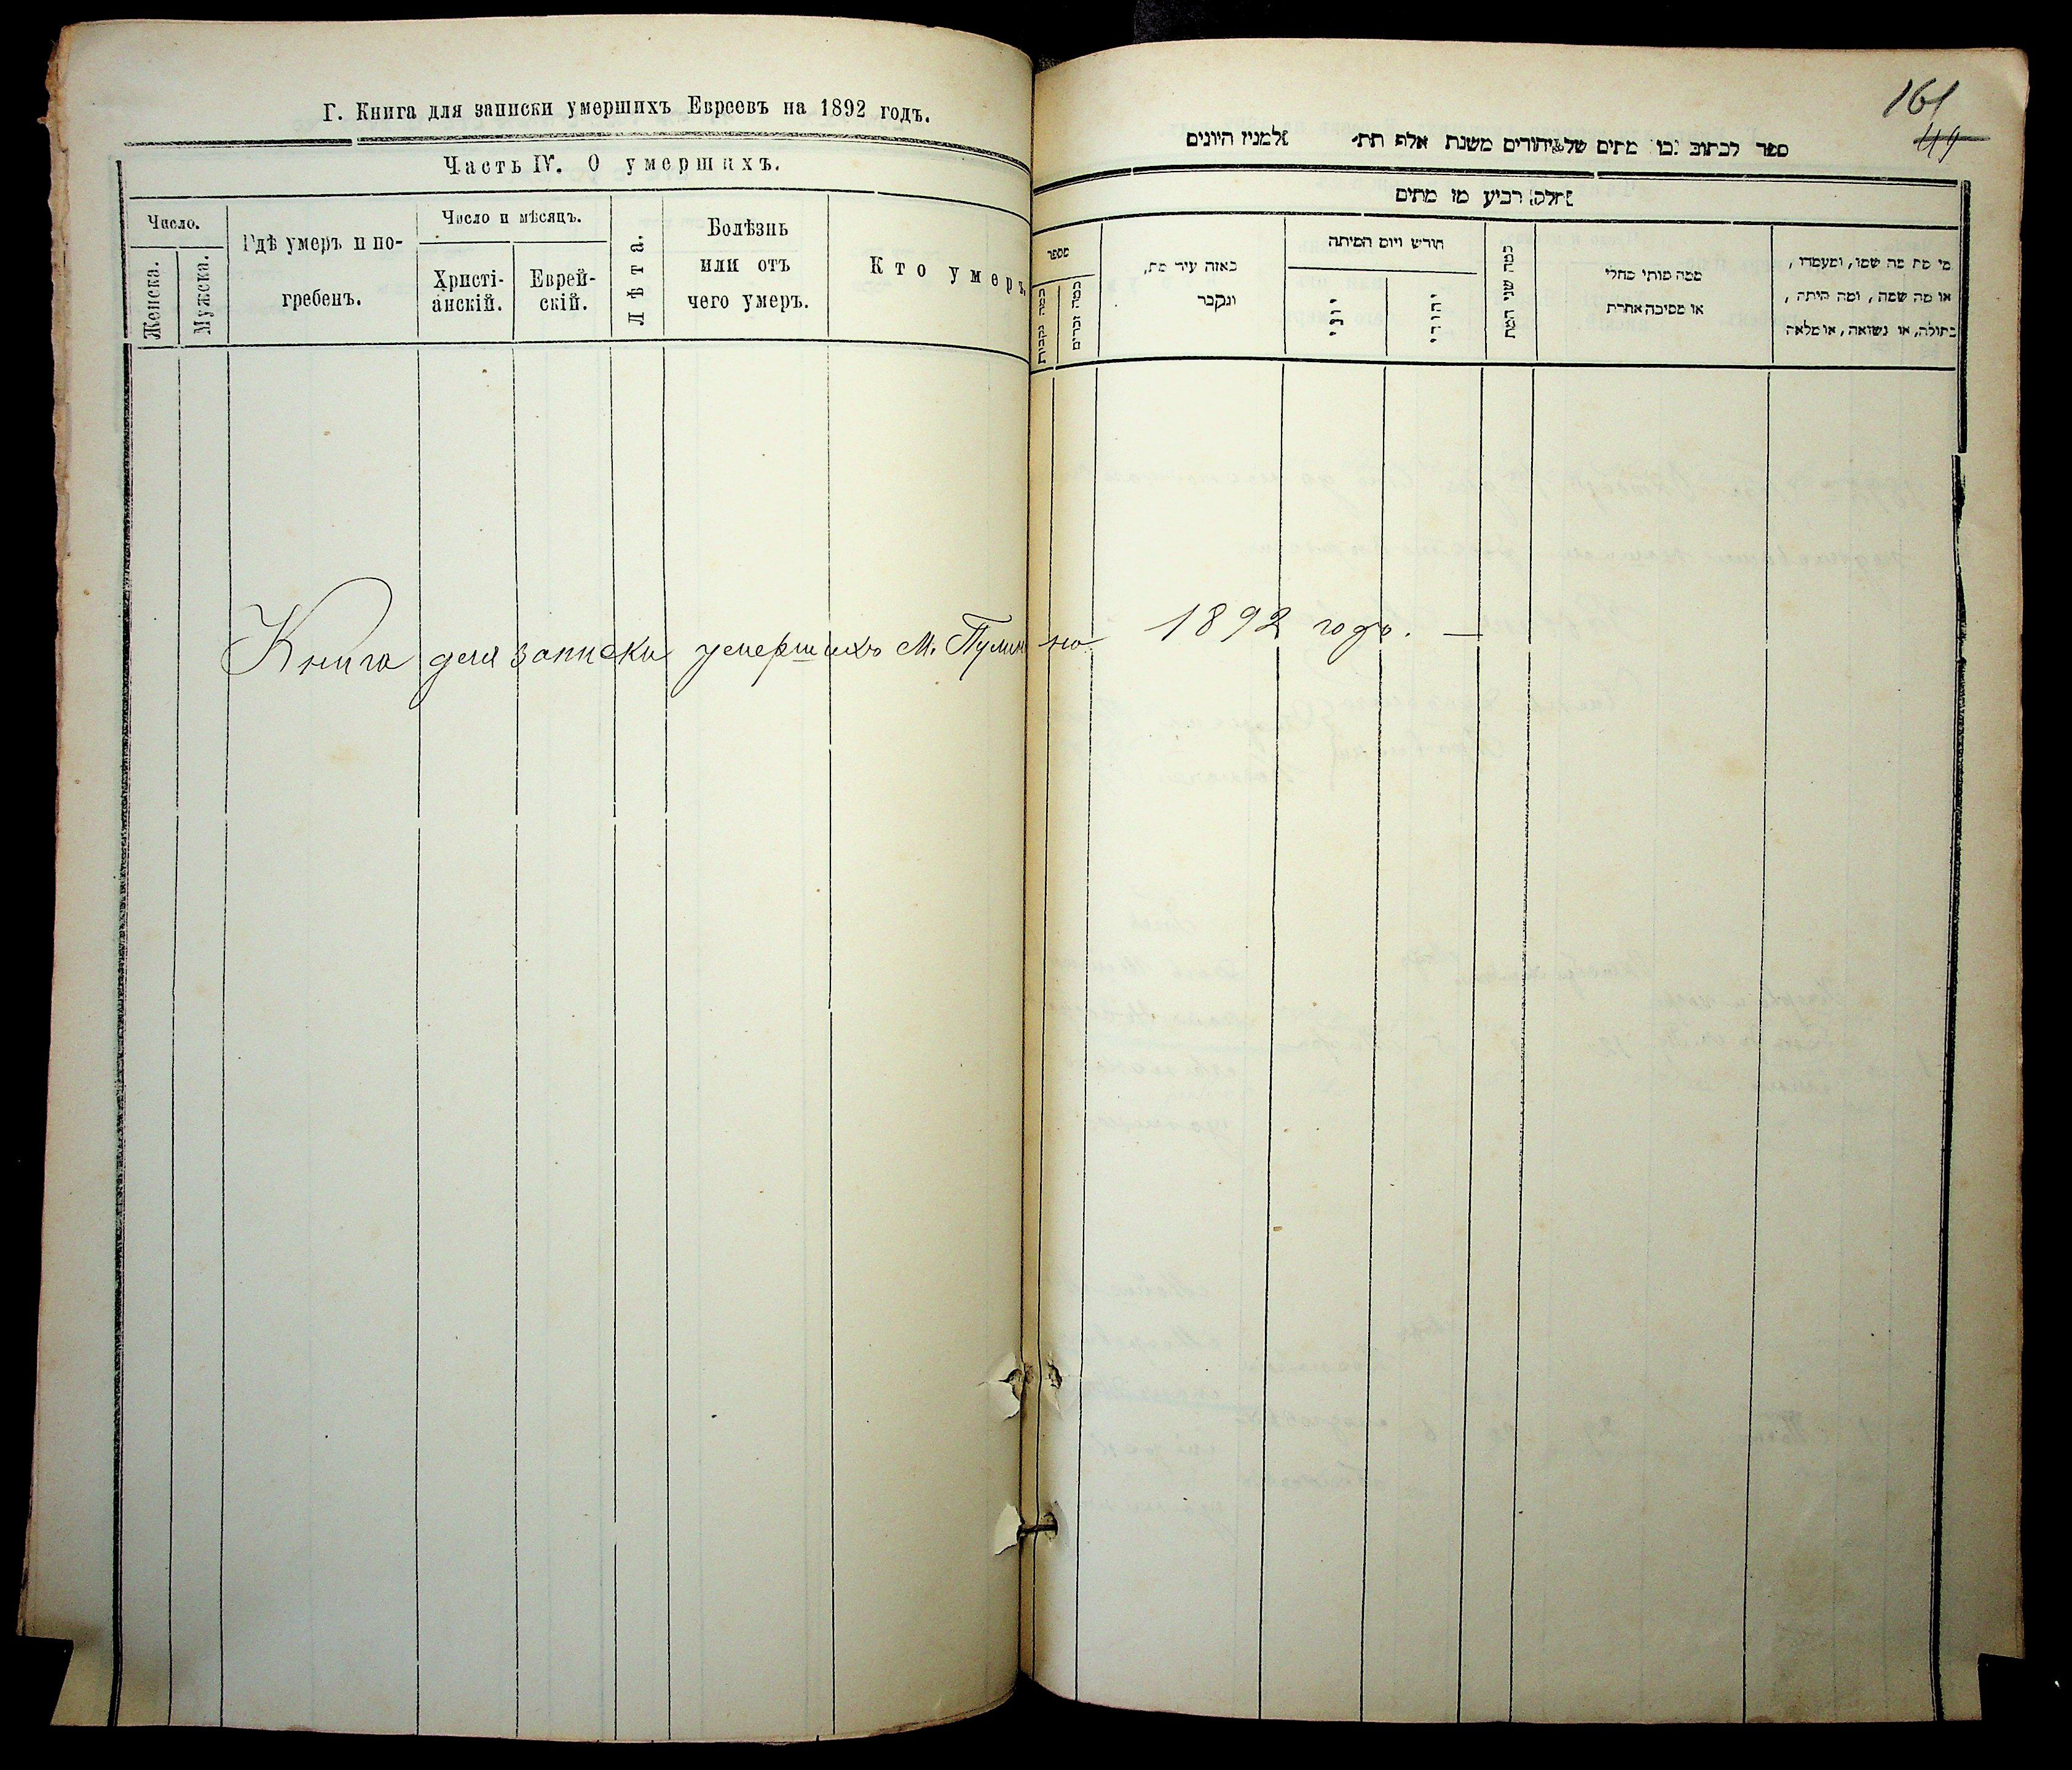 Г. Книга для записки умершихъ Евреевъ на 1892 годъ.
Часть IV. О умершихъ.
Число.
Женска.
Мужска.
Гдѣ умеръ и по-
гребенъ.
Число и мѣсяцъ.
Христі-
анскій.
Еврей-
скій.
Лѣта.
Болѣзнь
или отъ
чего умеръ.
Кто умеръ
Книга для записки умершихъ М. Пулинъ на 1892 годъ. —
161
49
ספר לכתוב בו מתים של יהודים משנת אלף תת׳ למנין היונים
חלק רביע מן מתים
מספר
כמה נקבות
כמה זכרים
באזה עיר מת,
ונקבר
חודש ויום המיתה
יוני
יהודי
כמה שני המת
ממה מותו מחלי
או מסיבה אחרת
מי מת מה שמו, ומעמדו,
או מה שמה, ומה היתה,
בתולה, או נשואה, או מלאה